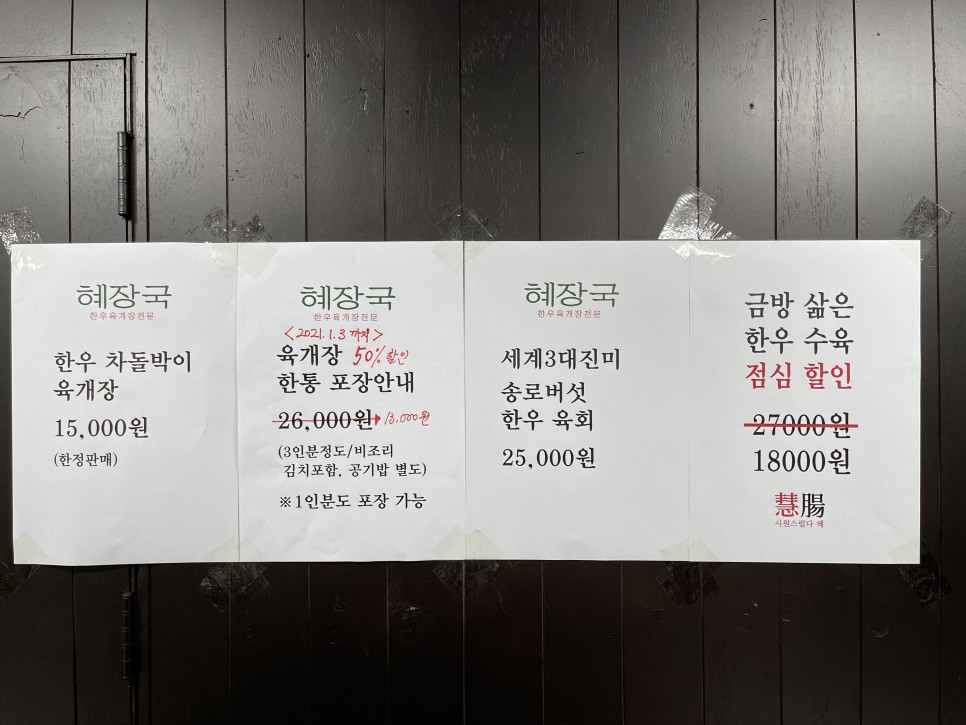 혜장국
한우육개장전문
한우 차돌박이
육개장
15,000원
(한정판매)
혜장국
한우육개장전문
<2021.1.3 까지>
육개장 50% 할인
한통 포장안내
26,000원 13,000원
(3인분정도/비조리
김치포함, 공기밥 별도)
※1인분도 포장 가능
혜장국
한우육개장전문
세계3대진미
송로버섯
한우 육회
25,000원
금방 삶은
한우 수육
점심 할인
27000원
18000원
慧腸
시원스럽다 혜